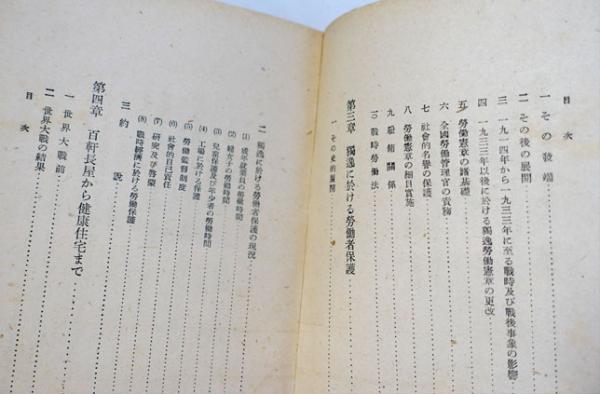 目次
一 その發端
二 その後の展開
三 一九一四年から一九三三年に至る戰時及び戰後事象の影響
四 一九三三年以後に於ける獨逸勞働憲章の更改
五 勞働憲章の諸基礎
六 全國勞働管理官の責務
七 社會的名譽の保護
八 勞働憲章の細目實施
九 雇傭關係
一〇 戰時勞働法
第三章 獨逸に於ける勞働者保護
一 その史的展開
二 獨逸に於ける勞働者保護の現況
(1) 成年就業員の勞働時間
(2) 婦女子の勞働時間
(3) 兒童保護及び年少者の勞働時間
(4) 工場に於ける保護
(5) 勞働監督制度
(6) 社會的自己責任
(7) 研究及び啓蒙
(8) 戰時經濟に於ける勞働保護
三 約說
第四章 百軒長屋から健康住宅まで
一 世界大戰前
二 世界大戰の結果
目次